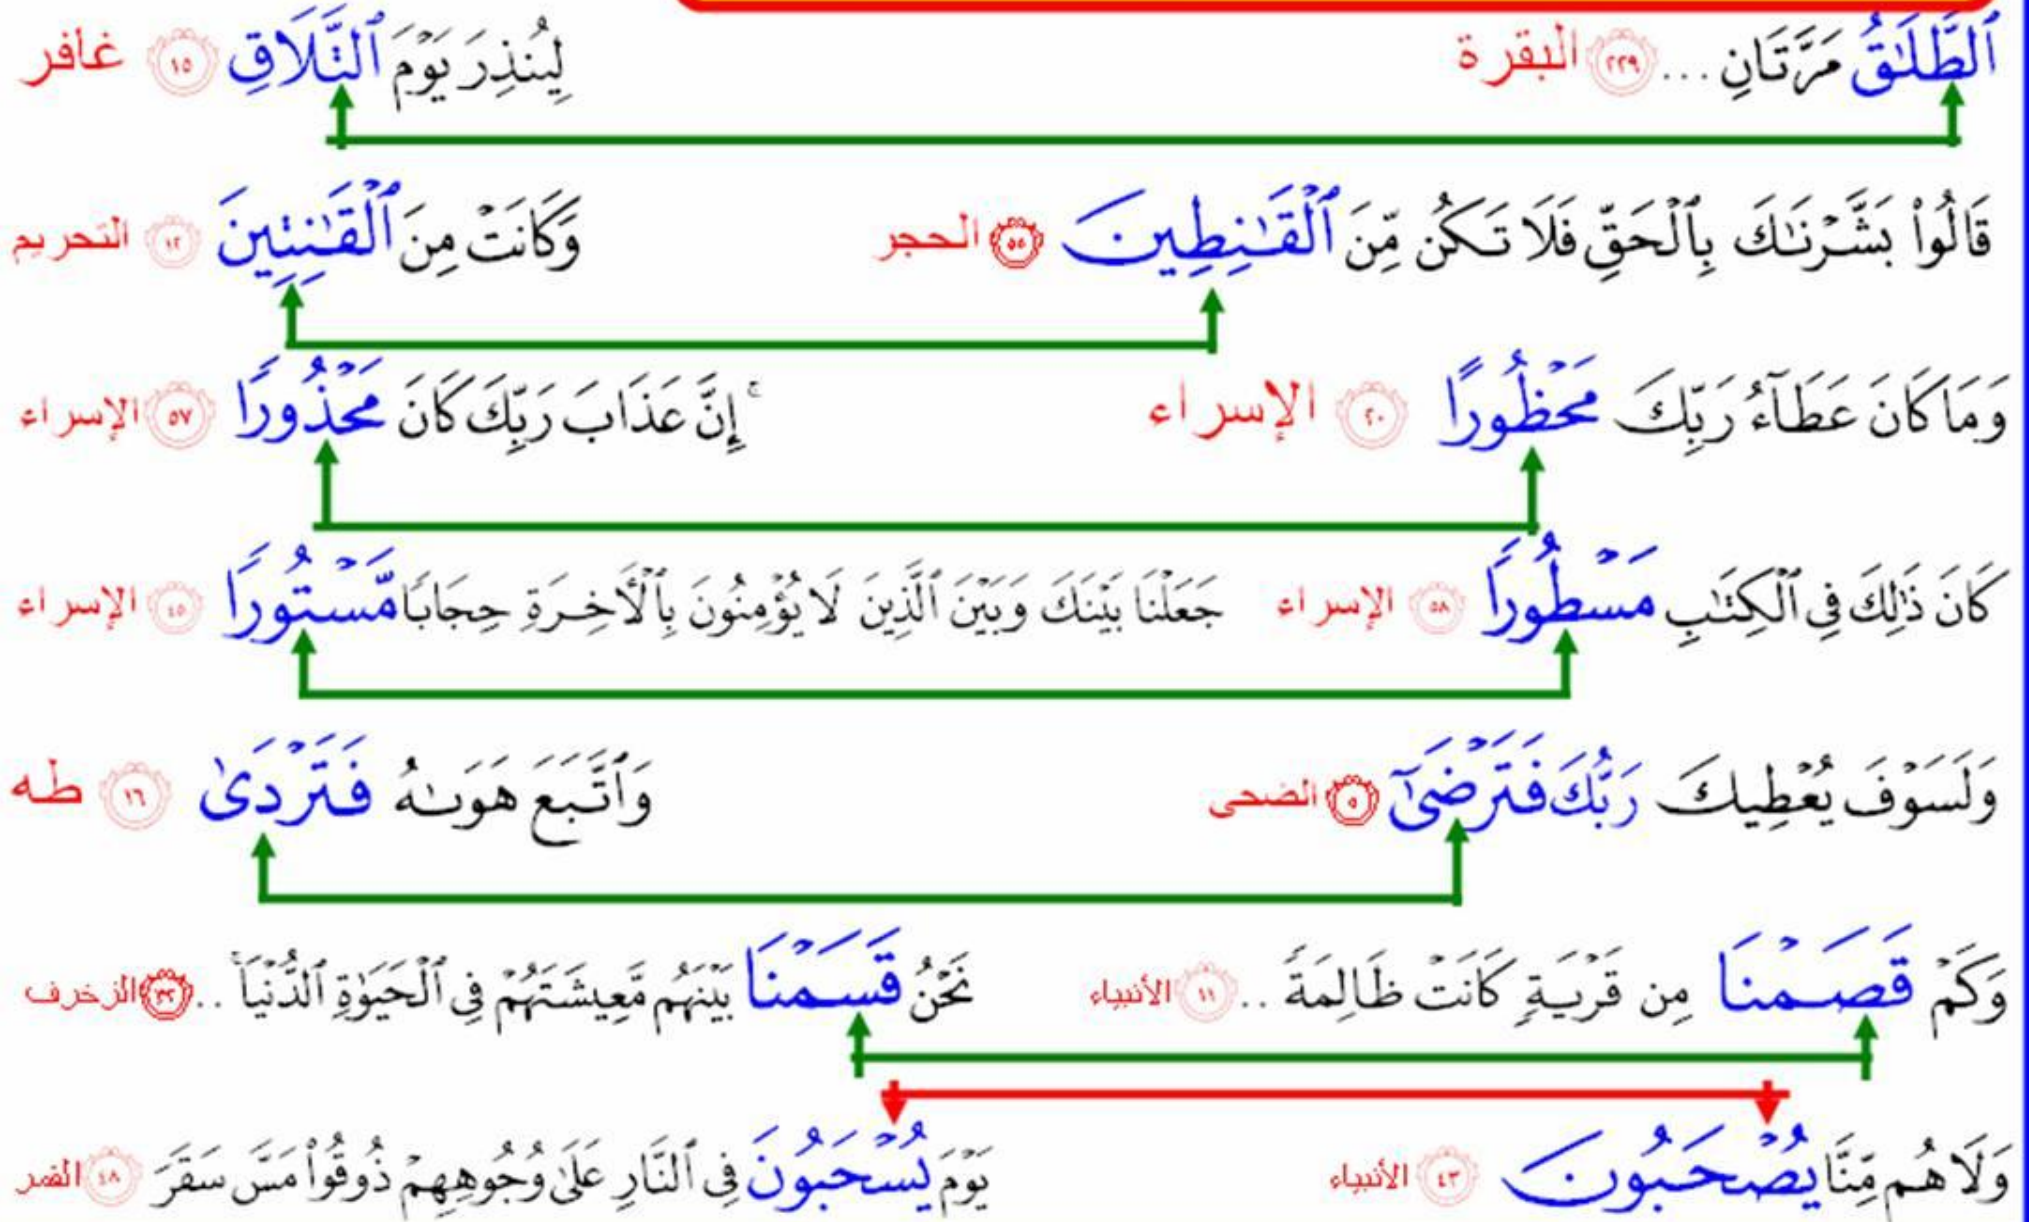 ٱلطَّلَٰقُ مَرَّتَانِ ... ٢٢٩ البقرة لِيُنذِرَ يَوْمَ ٱلتَّلَاقِ ١٥ غافر
قَالُوا۟ بَشَّرْنَٰكَ بِٱلْحَقِّ فَلَا تَكُن مِّنَ ٱلْقَٰنِطِينَ ٥٥ الحجر وَكَانَتْ مِنَ ٱلْقَٰنِتِينَ ١٢ التحريم
وَمَا كَانَ عَطَآءُ رَبِّكَ مَحْظُورًا ٢٠ الإسراء إِنَّ عَذَابَ رَبِّكَ كَانَ مَحْذُورًا ٥٧ الإسراء
كَانَ ذَٰلِكَ فِى ٱلْكِتَٰبِ مَسْطُورًا ٥٨ الإسراء جَعَلْنَا بَيْنَكَ وَبَيْنَ ٱلَّذِينَ لَا يُؤْمِنُونَ بِٱلْأَخِرَةِ حِجَابًا مَّسْتُورًا ٤٥ الإسراء
وَلَسَوْفَ يُعْطِيكَ رَبُّكَ فَتَرْضَىٰٓ ٥ الضحى وَٱتَّبَعَ هَوَىٰهُ فَتَرْدَىٰ ١٦ طه
وَكَمْ قَصَمْنَا مِن قَرْيَةٍ كَانَتْ ظَالِمَةً .. ١١ الأنبياء نَحْنُ قَسَمْنَا بَيْنَهُم مَّعِيشَتَهُمْ فِى ٱلْحَيَوٰةِ ٱلدُّنْيَا ۚ .. ٣٢ الزخرف
وَلَا هُم مِّنَّا يُصْحَبُونَ ٤٣ الأنبياء يَوْمَ يُسْحَبُونَ فِى ٱلنَّارِ عَلَىٰ وُجُوهِهِمْ ذُوقُوا۟ مَسَّ سَقَرَ ٤٨ القمر